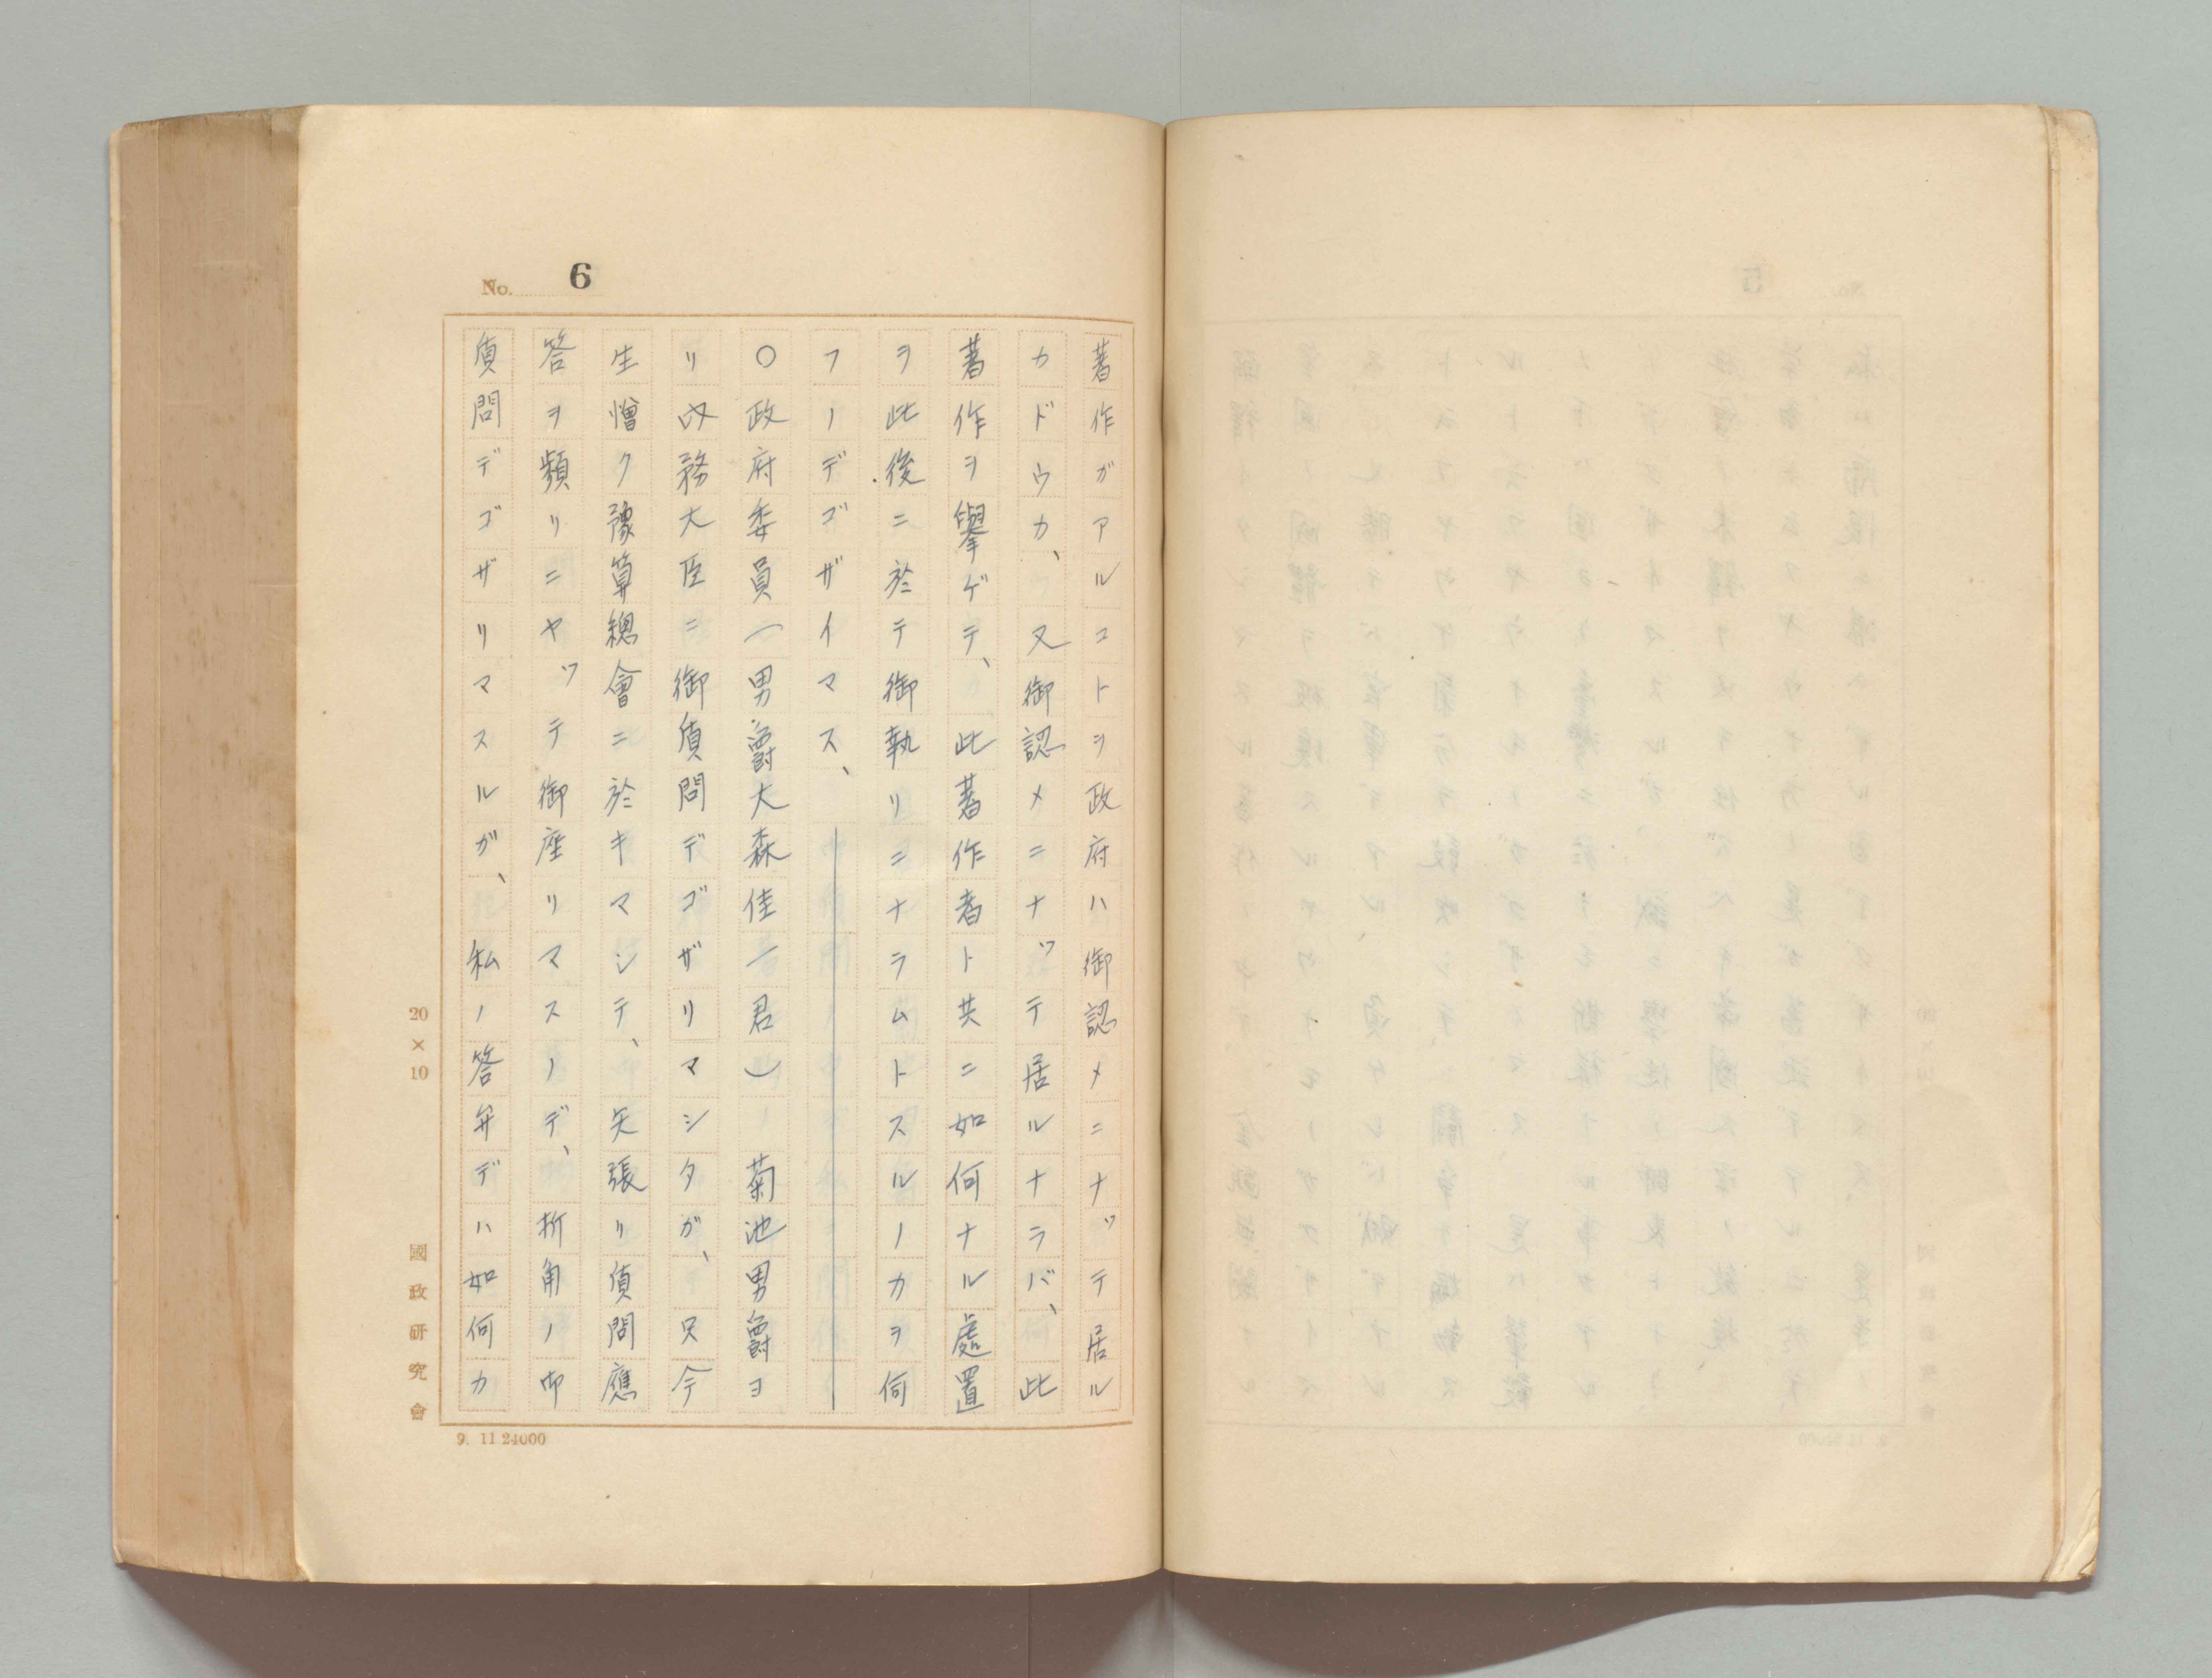 No. 6
著作ガアルコトヲ政府ハ御認メニナッテ居ル
カドウカ、又御認メニナッテ居ルナラバ、此
著作ヲ擧ゲテ、此著作者ト共ニ如何ナル處置
ヲ此後ニ於テ御執リニナラムトスルノカヲ伺
フノデゴザイマス、
〇政府委員(男爵大森佳一君) 菊池男爵ヨ
リ内務大臣ニ御質問デゴザリマシタガ、只今
生憎ク豫算總會ニ於キマシテ、矢張リ質問應
答ヲ頻リニヤッテ御座リマスノデ、折角ノ御
質問デゴザリマスルガ、私ノ答弁デハ如何カ
20×10
國政研究會
9. 11 24000